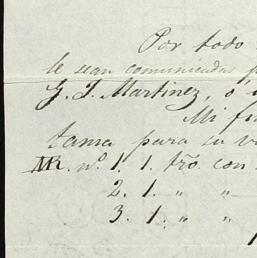 Por todo
le sean comunicadas p
G. J. Martinez, ó
Mi fi
tama para su v
MR. nº 1. 1. tró. con
2. 1. " "
3. 1. " "